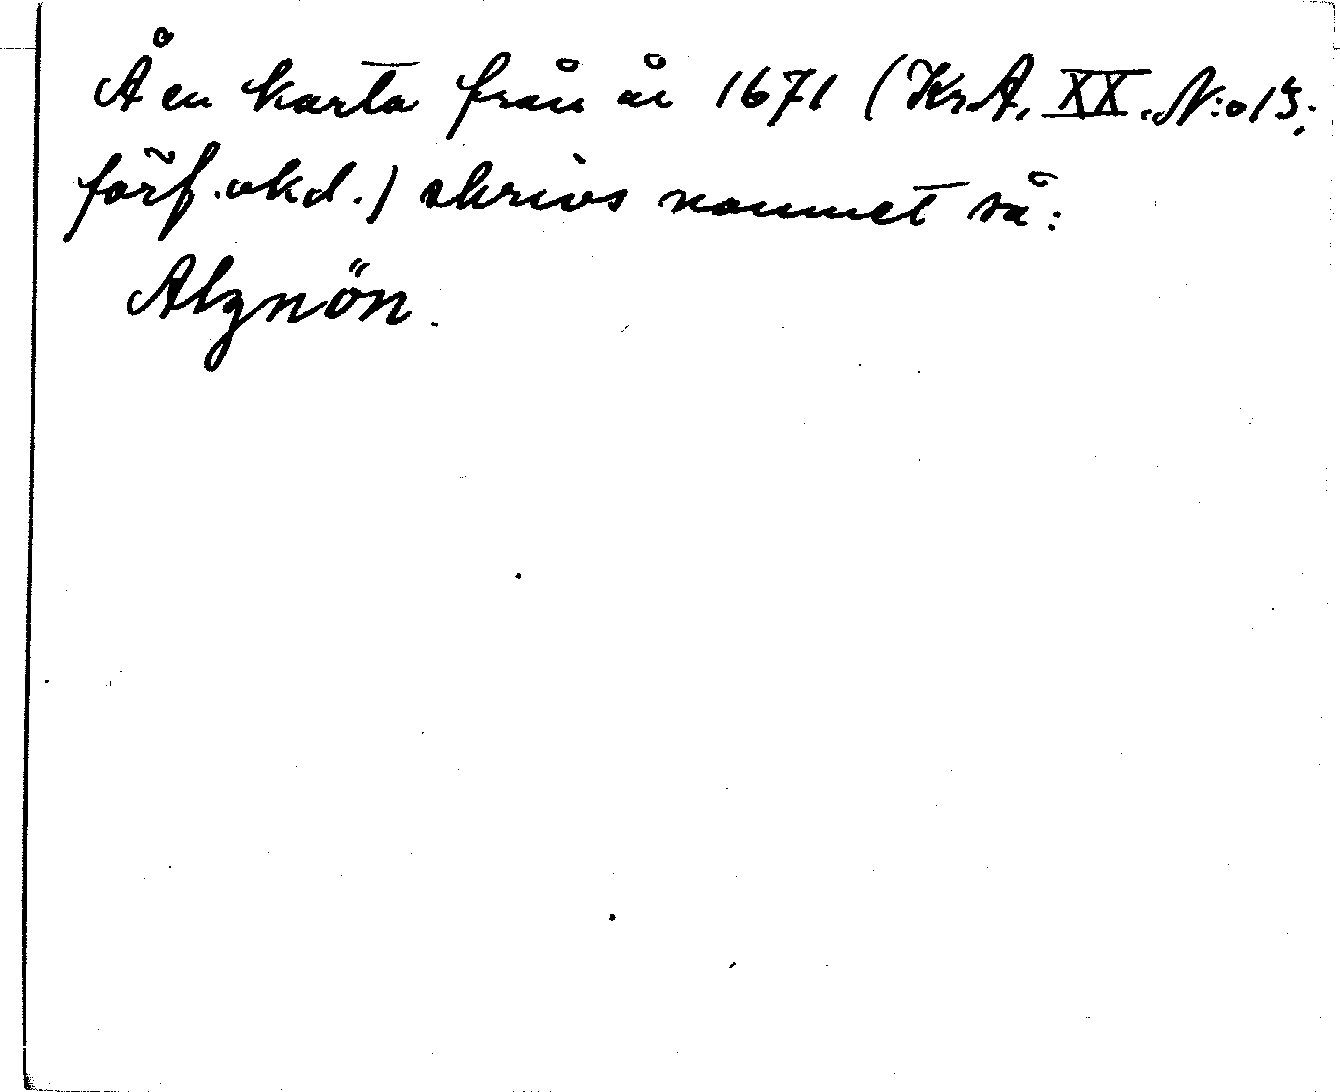 Å en karta från år 1671 (Kr.A. XX. N:o 15;
förf. okd.) skrivs namnet så:
Algnön.